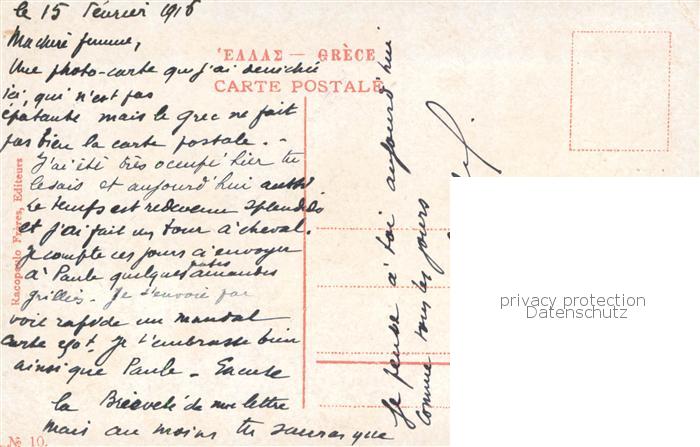 le 15 Février 1916
Ma chère femme,
Une photo-carte que j'ai denichée
ici, qui n'est pas
épatante mais le grec ne fait
pas bien la carte postale. -
J'ai été très occupé hier tu
le sais et aujourd'hui aussi
Le temps est redevenu splendide
et j'ai fait un tour à cheval.
Je compte ces jours ci envoyer
à Paule quelques amandes
grillées. Je t'envoie par
voie rapide un mandat
carte . Je t'embrasse bien
ainsi que Paule. Excuse
la Brièveté de ma lettre
mais au moins tu sauras que
Je pense à toi aujourd'hui
comme tous les jours
ἙΛΛΑΣ — GRÈCE
CARTE POSTALE
Racopoulo Frères, Editeurs
№ 10.
privacy protection
Datenschutz